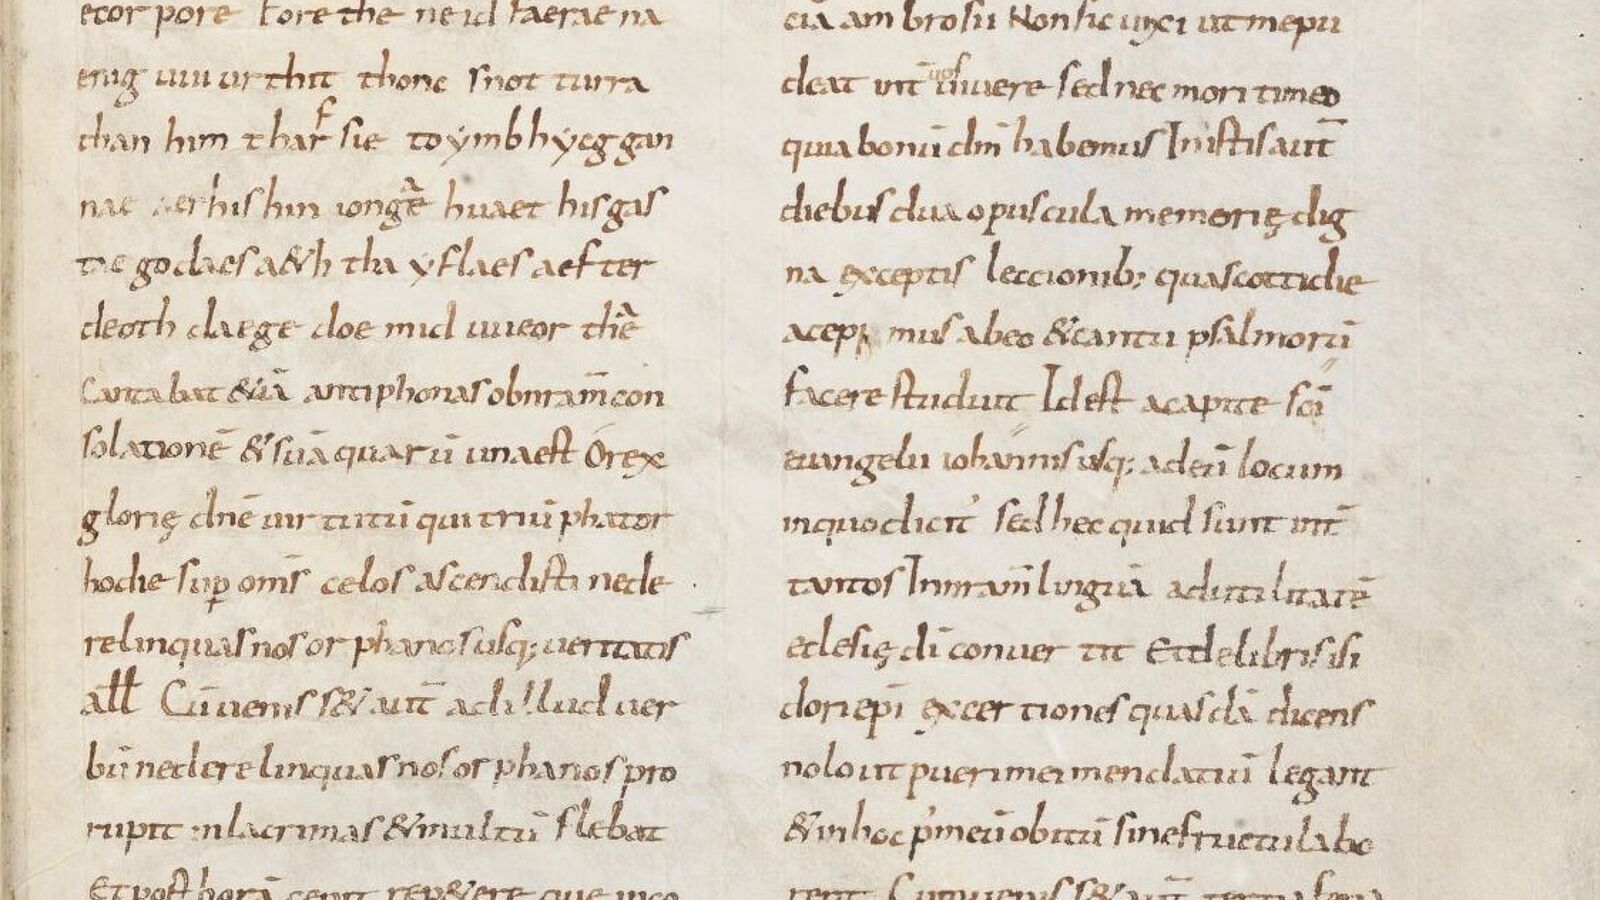 et corpore Fore the neid faerae na
enig uuiurthit thonc snot turra
than him tharf sie to ymbhycggan
nae aer his hin iongae huaet his gas
tae godaes aeth tha yflaes aefter
deoth daege doe mid uueor thae
Cantabat &iā antiphonas ob nrām con
solationē & suā quarū una est O rex
glorię dnē uirtutū qui triūphator
hodie sup omīs celos ascendisti ne de
relinquas nos orphanos usq; ueritatis
all Cū uenisset aut̄ ad illud uer
bū ne derelinquas nos orphanos pro
rupit in lacrimas & multū flebat
Et post horā cepit rep&ere que inco
cia ambrosii Non sic uixi ut me pu
deat int̄ uos uiuere sed nec mori timeo
quia bonū dn̄m habemus In istis aut̄
diebus dua opuscula memorię dig
na exceptis leccionib; quas cottidie
acepimus ab eo & cantu psalmorū
facere studuit Id est a capite sc̄i
euangelii iohannis usq; ad eū locum
in quo dicit̄ sed hec quid sunt int̄
tantos In nrām linguā ad utilitatē
eclesię dī conuertit Et de libris isi
dori epī excertiones quasdā dicens
nolo ut pueri mei mendatiū legant
& in hoc p̄ meū obitū sine fructu labo
rent Cum uenisset aut̄ tertia feria